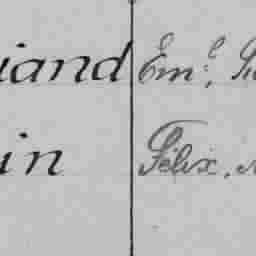 iand Em.e,
in Félix,